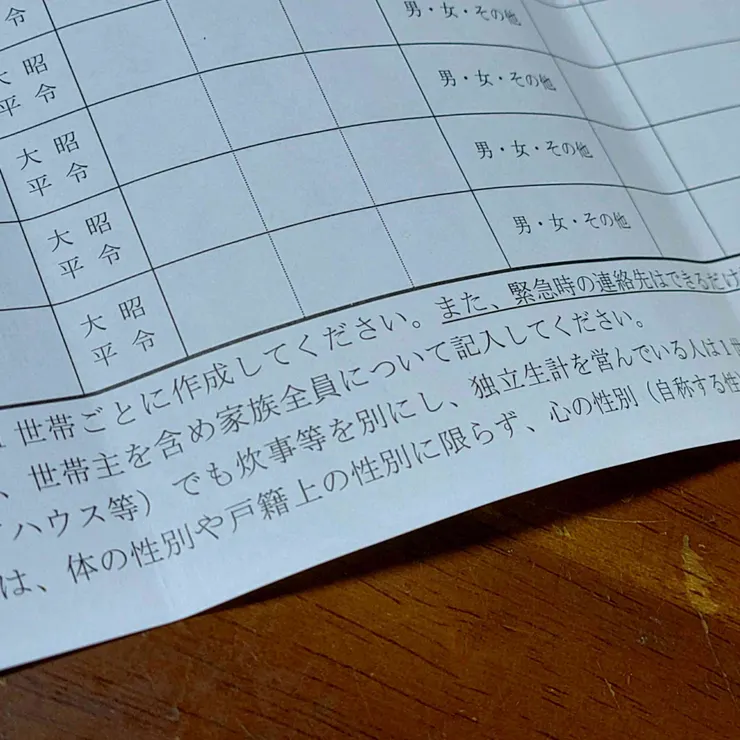 令
男・女・その他
大 昭
平 令
男・女・その他
大 昭
平 令
男・女・その他
大 昭
平 令
男・女・その他
大 昭
平 令
世帯ごとに作成してください。また、緊急時の連絡先はできるだけ
、世帯主を含め家族全員について記入してください。
ハウス等）でも炊事等を別にし、独立生計を営んでいる人は1世
は、体の性別や戸籍上の性別に限らず、心の性別（自称する性